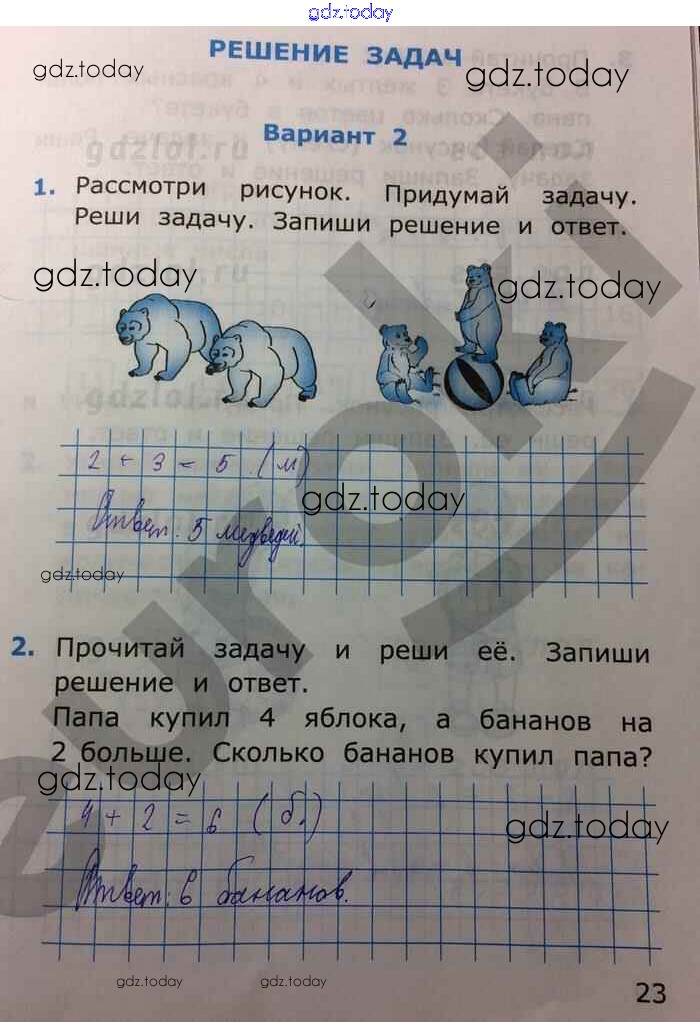 gdz.today
РЕШЕНИЕ ЗАДАЧ
gdz.today
gdz.today
Вариант 2
gdzlol.ru
1. Рассмотри рисунок. Придумай задачу.
Реши задачу. Запиши решение и ответ.
gdz.today
gdz.today
gdzlol.ru
2 + 3 = 5 (м)
gdz.today
Ответ: 5 медведей.
gdz.today
euroki
2. Прочитай задачу и реши её. Запиши
решение и ответ.
Папа купил 4 яблока, а бананов на
2 больше. Сколько бананов купил папа?
gdz.today
4 + 2 = 6 (б.)
gdz.today
Ответ: 6 бананов.
gdz.today
gdz.today
23